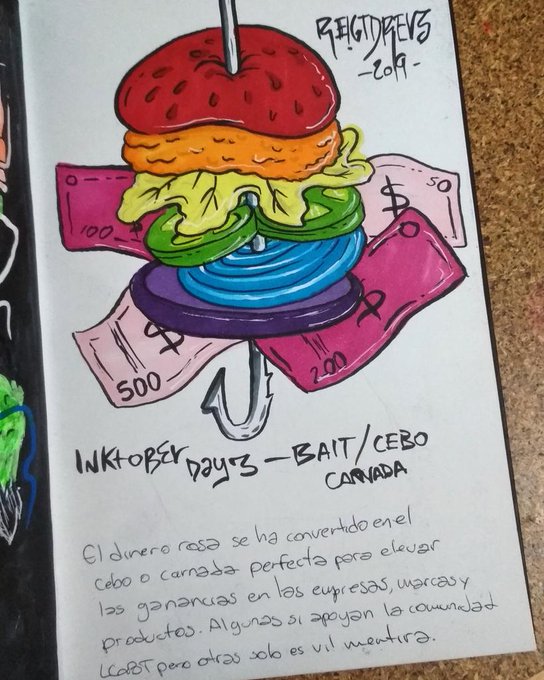 REIGTDREVS
-2019-
100 $
$ 50
$
500
$
200
INKTOBER Day 3 - BAIT/CEBO
CARNADA
El dinero rosa se ha convertido en el
cebo o carnada perfecta para elevar
las ganancias en las empresas, marcas y
productos. Algunas si apoyan la comunidad
LGBT pero otras solo es vil mentira.